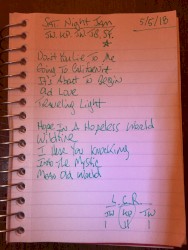 Sat Night Jam 5/5/18
JW, KP, JW, JB, SF
Don't You Lie To Me
Going To California
It's About To Begin
Got Love
Traveling Light
Hope In A Hopeless World
Wildfire
I Hear You Knocking
Into The Mystic
Mean Old World
L C R
JW KP JW